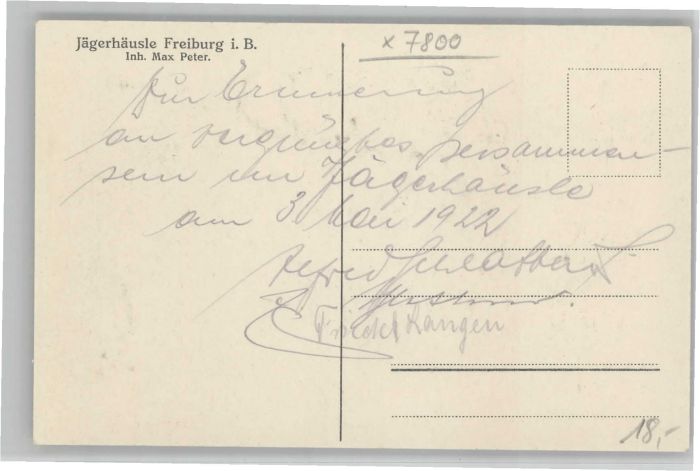 Jägerhäusle Freiburg i. B.
Inh. Max Peter.
x 7800
Zur Erinnerung
an vergnügtes Zusammen-
sein im Jägerhäusle
am 3 Mai 1922
Alfred
Friedel Langen
18,-